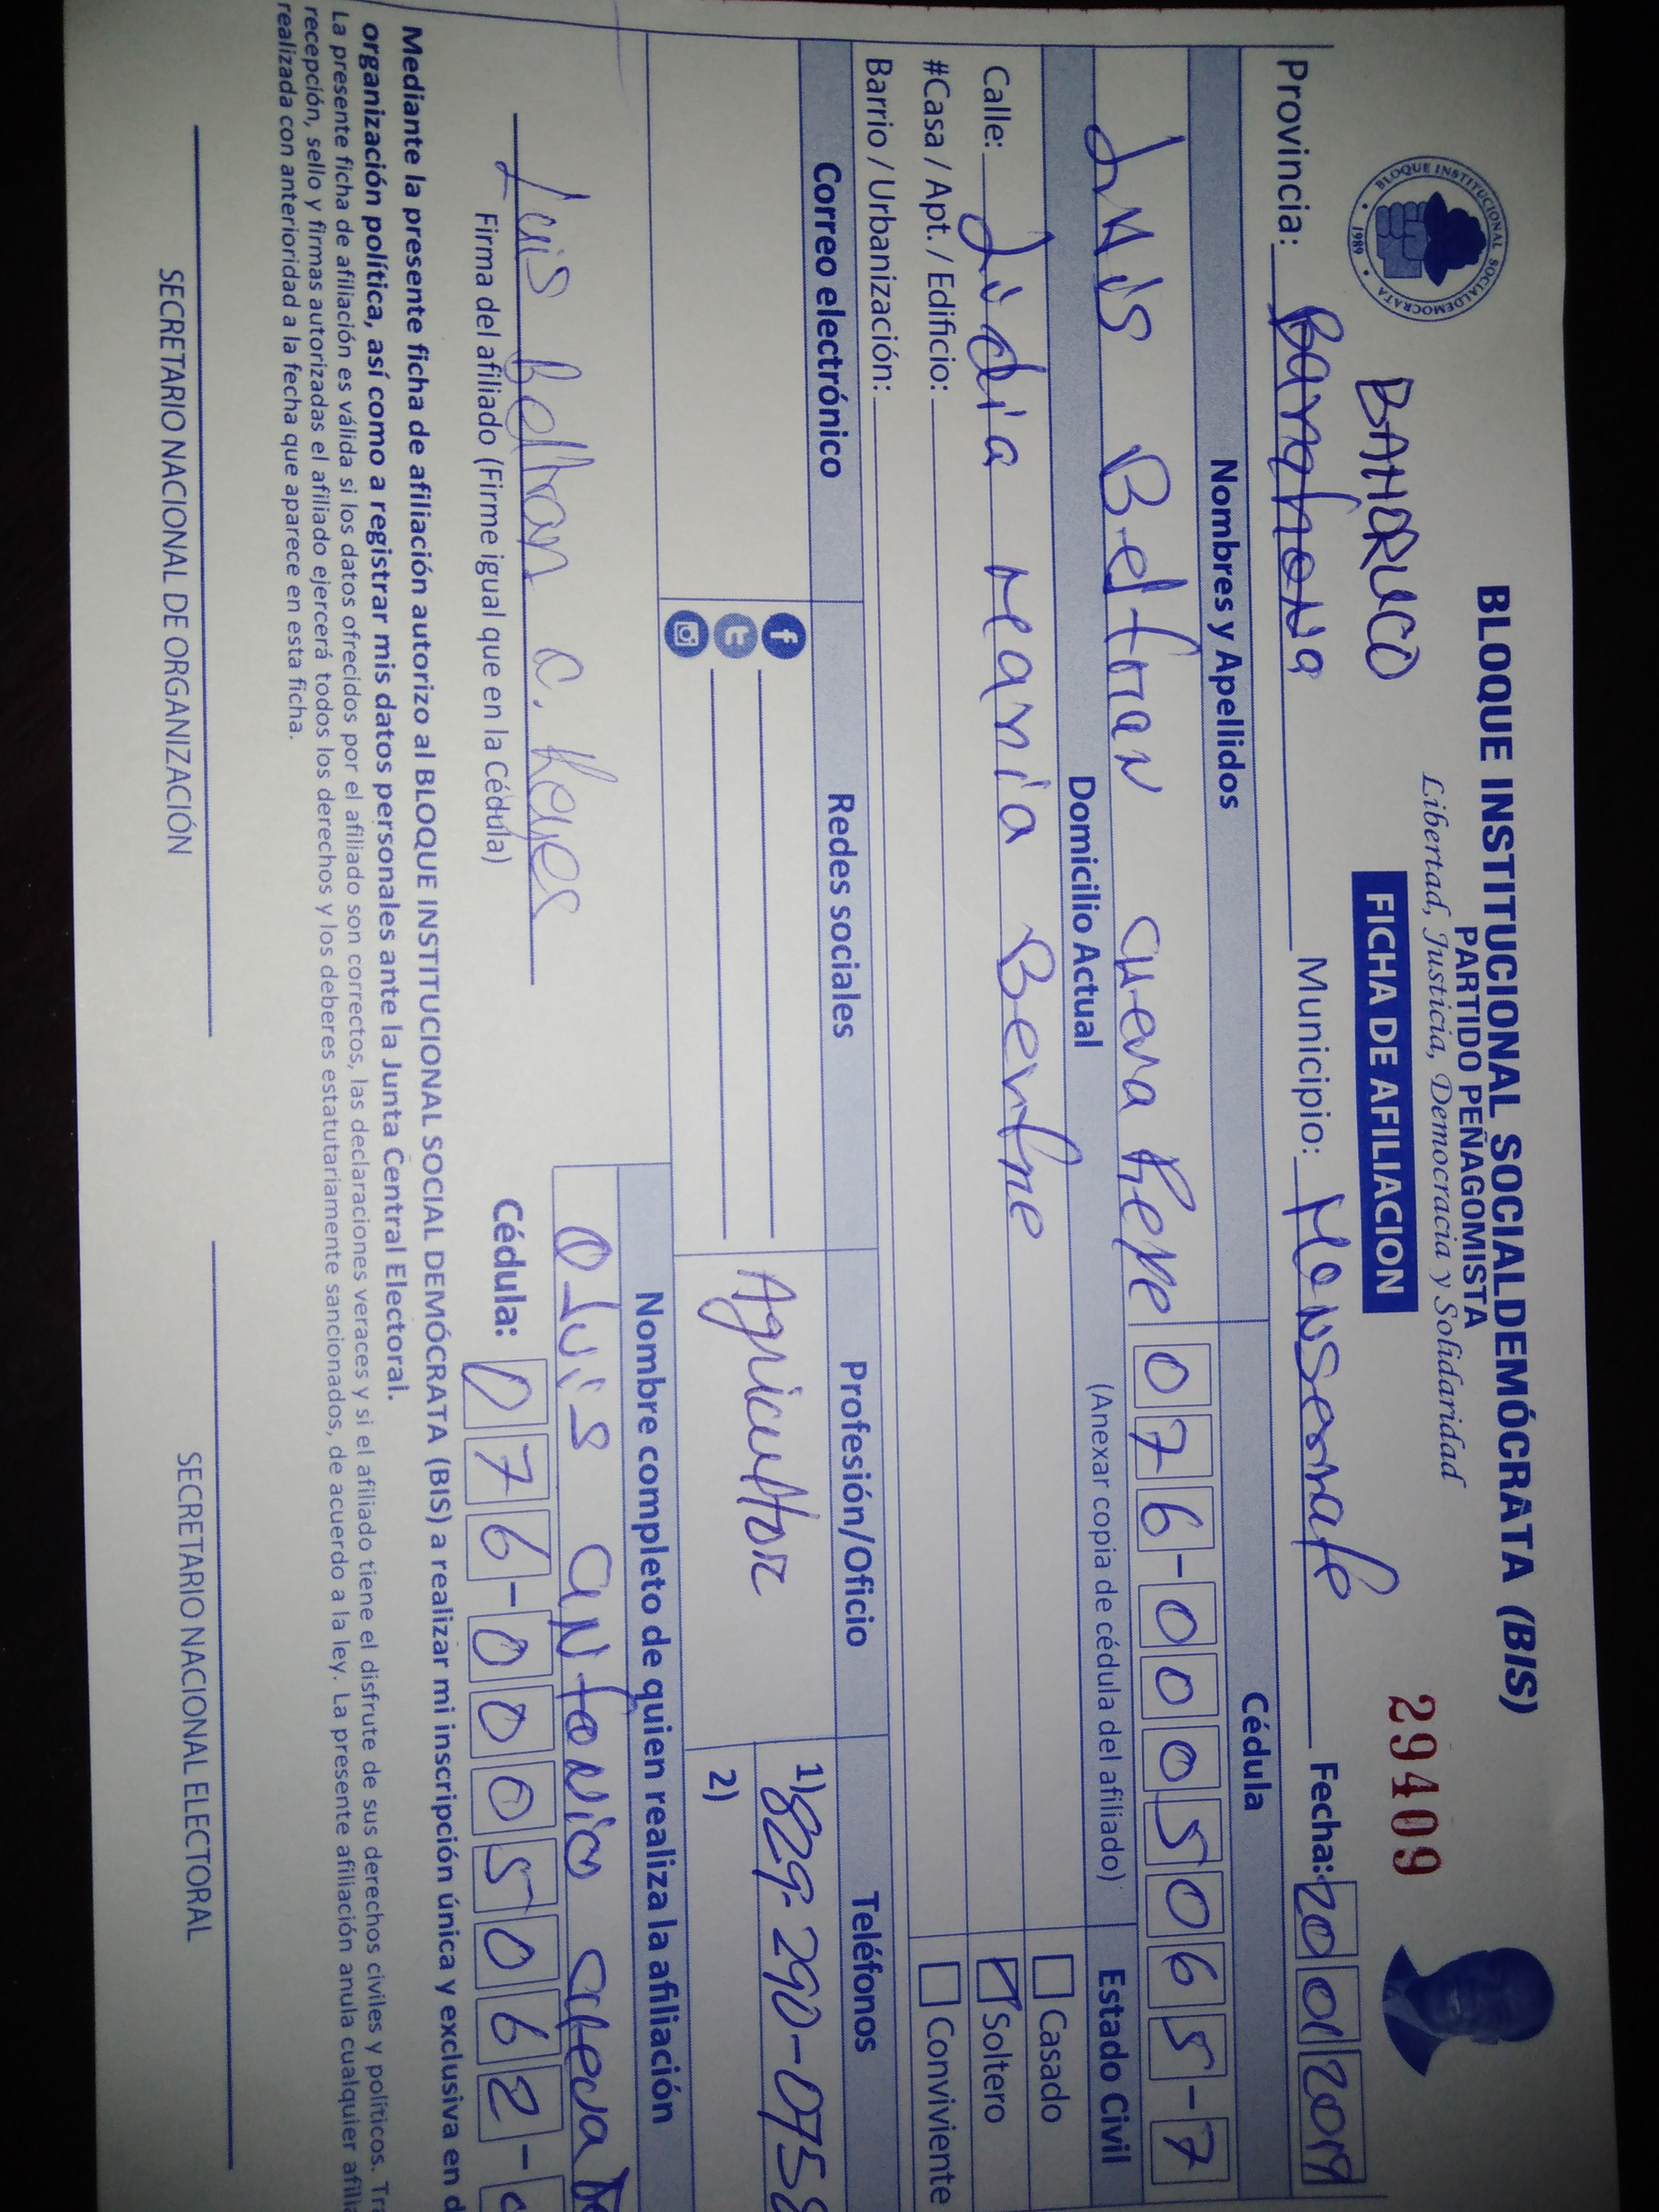 BLOQUE INSTITUCIONAL SOCIALDEMÓCRATA (BIS)
PARTIDO PEÑAGOMISTA
Libertad, Justicia, Democracia y Solidaridad
BLOQUE INSTITUCIONAL SOCIALDEMOCRATA
1989
FICHA DE AFILIACION
29409
BAHORUCO
Provincia: Barahona Municipio: Monserrate Fecha: 20 01 2019
Nombres y Apellidos Cédula
Luis Beltran Cueva 076-0005065-7
Domicilio Actual (Anexar copia de cédula del afiliado) Estado Civil
Calle: Lidia Maria
#Casa / Apt. / Edificio:
Barrio / Urbanización:
Casado
Soltero
Conviviente
Correo electrónico Redes sociales Profesión/Oficio Teléfonos
Agricultor
1) 829-290-075
2)
Nombre completo de quien realiza la afiliación
Luis Antonio Cueva
Luis Beltran C. Reyes
Firma del afiliado (Firme igual que en la Cédula)
Cédula: 076-0005062-
Mediante la presente ficha de afiliación autorizo al BLOQUE INSTITUCIONAL SOCIAL DEMÓCRATA (BIS) a realizar mi inscripción única y exclusiva en
organización política, así como a registrar mis datos personales ante la Junta Central Electoral.
La presente ficha de afiliación es válida si los datos ofrecidos por el afiliado son correctos, las declaraciones veraces y si el afiliado tiene el disfrute de sus derechos civiles y políticos.
recepción, sello y firmas autorizadas el afiliado ejercerá todos los derechos y los deberes estatutariamente sancionados, de acuerdo a la ley. La presente afiliación anula cualquier
realizada con anterioridad a la fecha que aparece en esta ficha.
SECRETARIO NACIONAL DE ORGANIZACIÓN SECRETARIO NACIONAL ELECTORAL